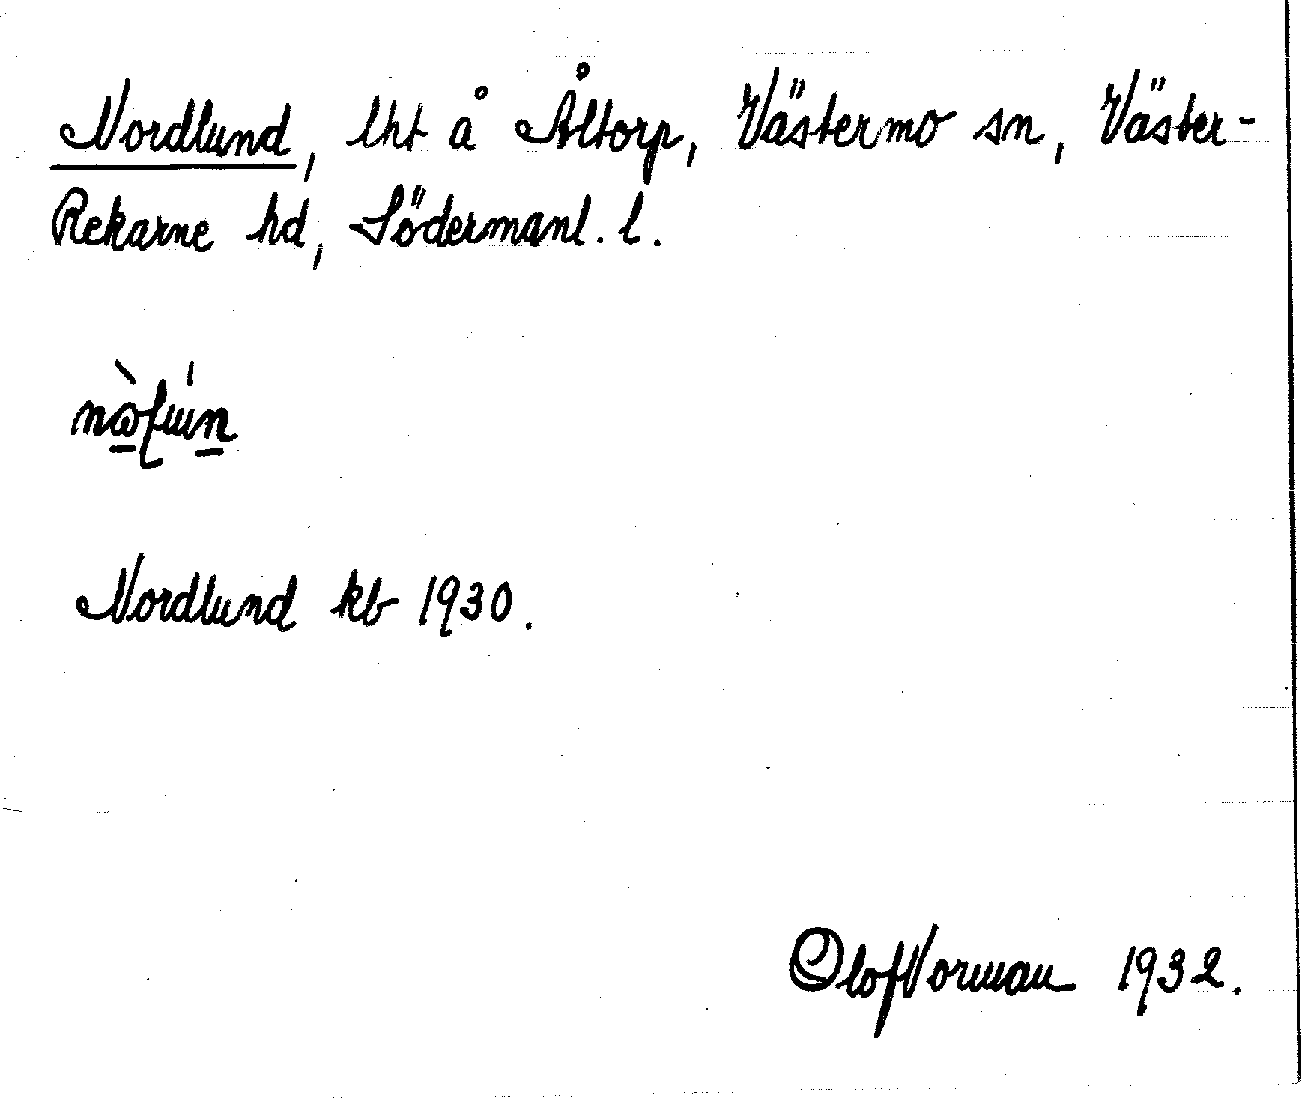 Nordlund, lht å Åltorp, Västermo sn, Väster-
Rekarne hd, Södermanl. l.
Nordlund kb 1930.
Olof Norman 1932.